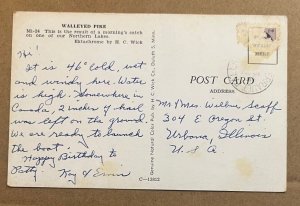 WALLEYED PIKE
Mi-24 This is the result of a morning's catch
on one of our Northern Lakes.
Ektachrome by H. C. Wick
Hi!
It is 46° cold, wet
and windy here. Water
is high. Somewhere in
Canada, 2 inches of hail
was left on the ground.
We are ready to launch
the boat.
Happy Birthday to
Patty. Kay & Erwin
C-13813
POST CARD
ADDRESS
Mr & Mrs Wilbur Scaff
304 E Oregon St
Urbana, Illinois
U S A
PLACE
STAMP
HERE